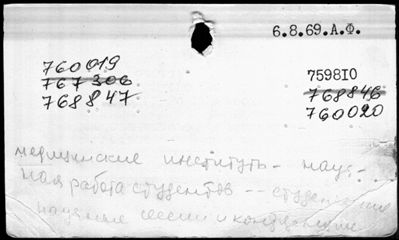 6.8.69.А.Ф.
760019
767306
768847
759810
768846
760020
медицинские институты - науч-
ная работа студентов -- студенческие
научные сессии и конференции